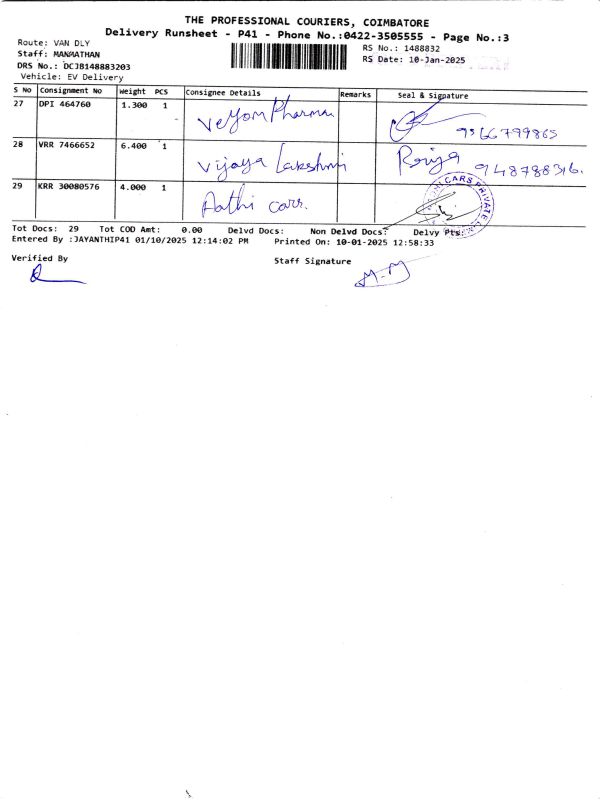 THE PROFESSIONAL COURIERS, COIMBATORE
Delivery Runsheet - P41 - Phone No.:0422-3505555 - Page No.:3
Route: VAN DLY
RS No.: 1488832
Staff: MANMATHAN
RS Date: 10-Jan-2025
DRS No.: DCJB148883203
Vehicle: EV Delivery
S No Consignment No Weight PCS Consignee Details Remarks Seal & Signature
27 DPI 464760 1.300 1 Veyom Pharma 9566799865
28 VRR 7466652 6.400 1 Vijaya Lakshmi Priya 948788316.
29 KRR 30080576 4.000 1 Aathi cars. CARS PRIVATE
Tot Docs: 29 Tot COD Amt: 0.00 Delvd Docs: Non Delvd Docs: Delvy Pts:
Entered By :JAYANTHIP41 01/10/2025 12:14:02 PM Printed On: 10-01-2025 12:58:33
Verified By
Staff Signature